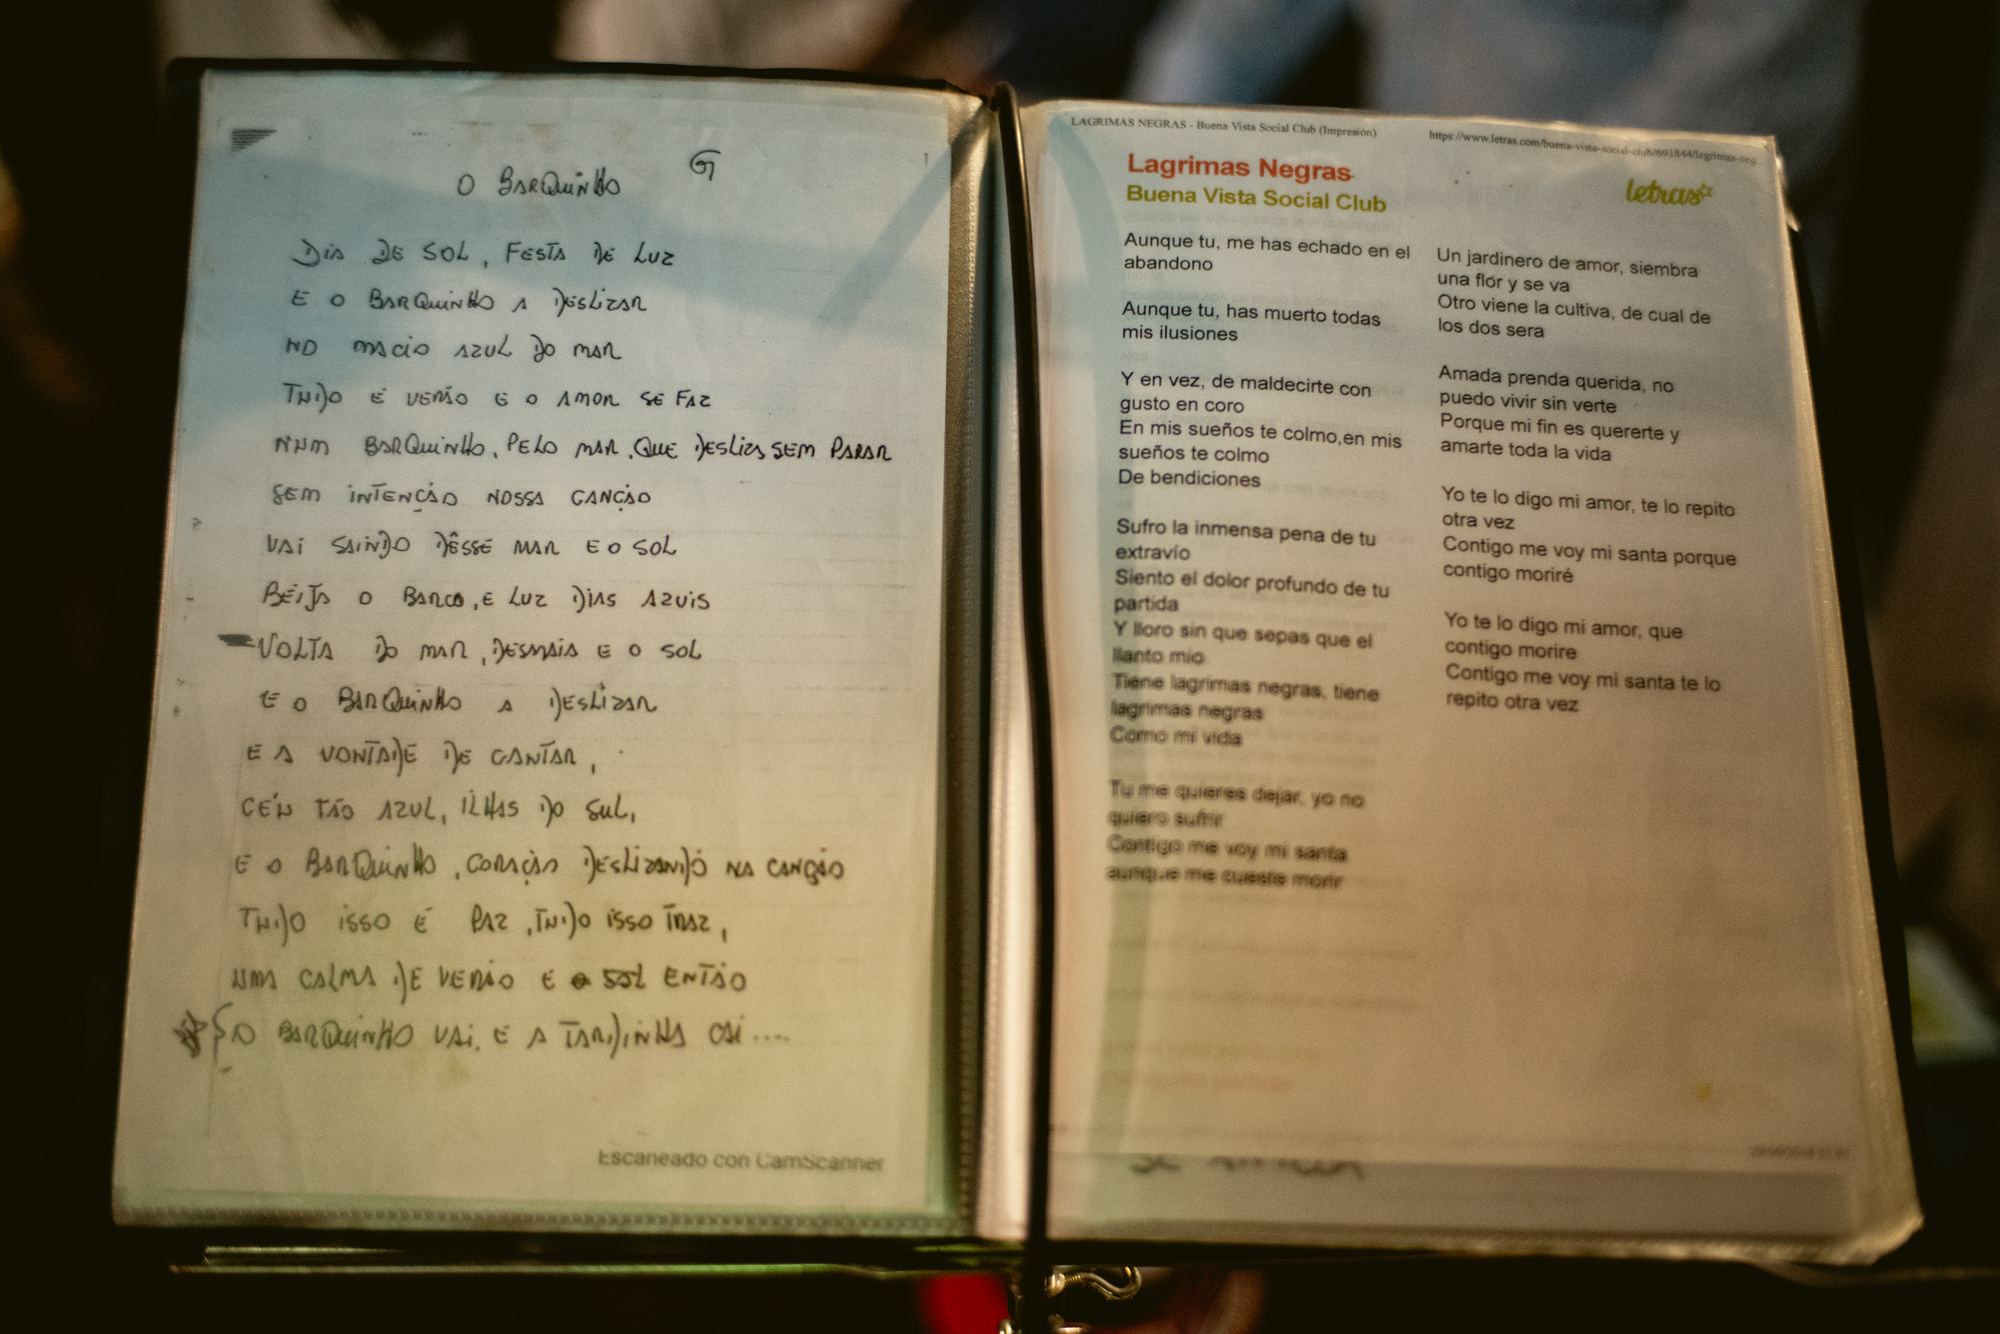 O BARQUINHO G
DIA DE SOL, FESTA DE LUZ
E O BARQUINHO A DESLIZAR
NO MACIO AZUL DO MAR
TUDO É VERÃO E O AMOR SE FAZ
NUM BARQUINHO, PELO MAR, QUE DESLIZA SEM PARAR
SEM INTENÇÃO NOSSA CANÇÃO
VAI SAINDO DÊSSE MAR E O SOL
BEIJA O BARCO, E LUZ DIAS AZUIS
VOLTA DO MAR, DESMAIA E O SOL
E O BARQUINHO A DESLIZAR
E A VONTADE DE CANTAR,
CÉU TÃO AZUL, ILHAS DO SUL,
E O BARQUINHO, CORAÇÃO DESLIZANDO NA CANÇÃO
TUDO ISSO É PAZ, TUDO ISSO TRAZ,
UMA CALMA DE VERÃO E O SOL ENTÃO
O BARQUINHO VAI, E A TARDINHA CAI....
Escaneado con CamScanner
LAGRIMAS NEGRAS - Buena Vista Social Club (Impresión)
https://www.letras.com/buena-vista-social-club/693844/lagrimas-neg...
Lagrimas Negras
Buena Vista Social Club
letras
Aunque tu, me has echado en el
abandono
Aunque tu, has muerto todas
mis ilusiones
Y en vez, de maldecirte con
gusto en coro
En mis sueños te colmo,en mis
sueños te colmo
De bendiciones
Sufro la inmensa pena de tu
extravío
Siento el dolor profundo de tu
partida
Y lloro sin que sepas que el
llanto mio
Tiene lagrimas negras, tiene
lagrimas negras
Como mi vida
Tu me quieres dejar, yo no
quiero sufrir
Contigo me voy mi santa
aunque me cueste morir
Un jardinero de amor, siembra
una flor y se va
Otro viene la cultiva, de cual de
los dos sera
Amada prenda querida, no
puedo vivir sin verte
Porque mi fin es quererte y
amarte toda la vida
Yo te lo digo mi amor, te lo repito
otra vez
Contigo me voy mi santa porque
contigo moriré
Yo te lo digo mi amor, que
contigo morire
Contigo me voy mi santa te lo
repito otra vez